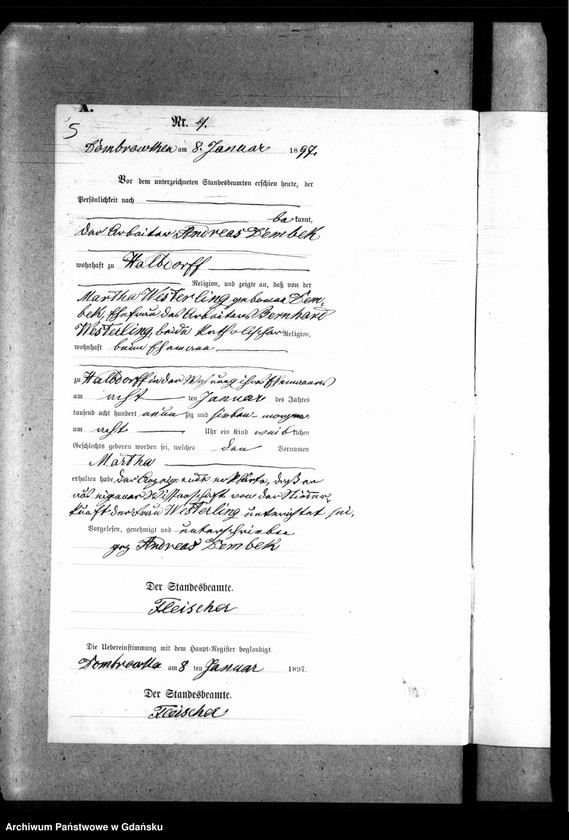 A.
5
Nr. 4.
Dombrowken am 8. Januar 1897.
Vor dem unterzeichneten Standesbeamten erschien heute, der
Persönlichkeit nach
bekannt,
der Arbeiter Andreas Dembek
wohnhaft zu Walddorff
Religion, und zeigte an, daß von der
Martha Westerling geborene Dem-
bek, Ehefrau des Arbeiters Bernhard
Westerling, beide katholischer Religion,
wohnhaft beim Ehemann
zu Walddorff in der Wohnung ihres Ehemannes
am acht ten Januar des Jahres
tausend acht hundert neunzig und sieben morgens
um acht Uhr ein Kind weiblichen
Geschlechts geboren worden sei, welches den Vornamen
Martha
erhalten habe, der Anzeigende erklärte, daß er
aus eigener Wissenschaft von der Nieder-
kunft der Frau Westerling unterrichtet sei.
Vorgelesen, genehmigt und unterschrieben
gez Andreas Dembek
Der Standesbeamte.
Fleischer
Die Uebereinstimmung mit dem Haupt-Register beglaubigt.
Dombrowken am 8 ten Januar 1897.
Der Standesbeamte.
Fleischer
Archiwum Państwowe w Gdańsku